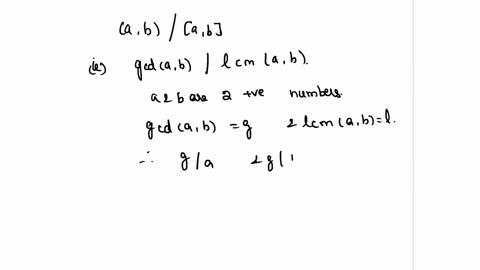 (a,b) / [a,b]
(ie) gcd(a,b) / lcm(a,b).
a & b are 2 +ve numbers.
gcd(a,b) = g & lcm(a,b) = l.
∴ g/a & g/